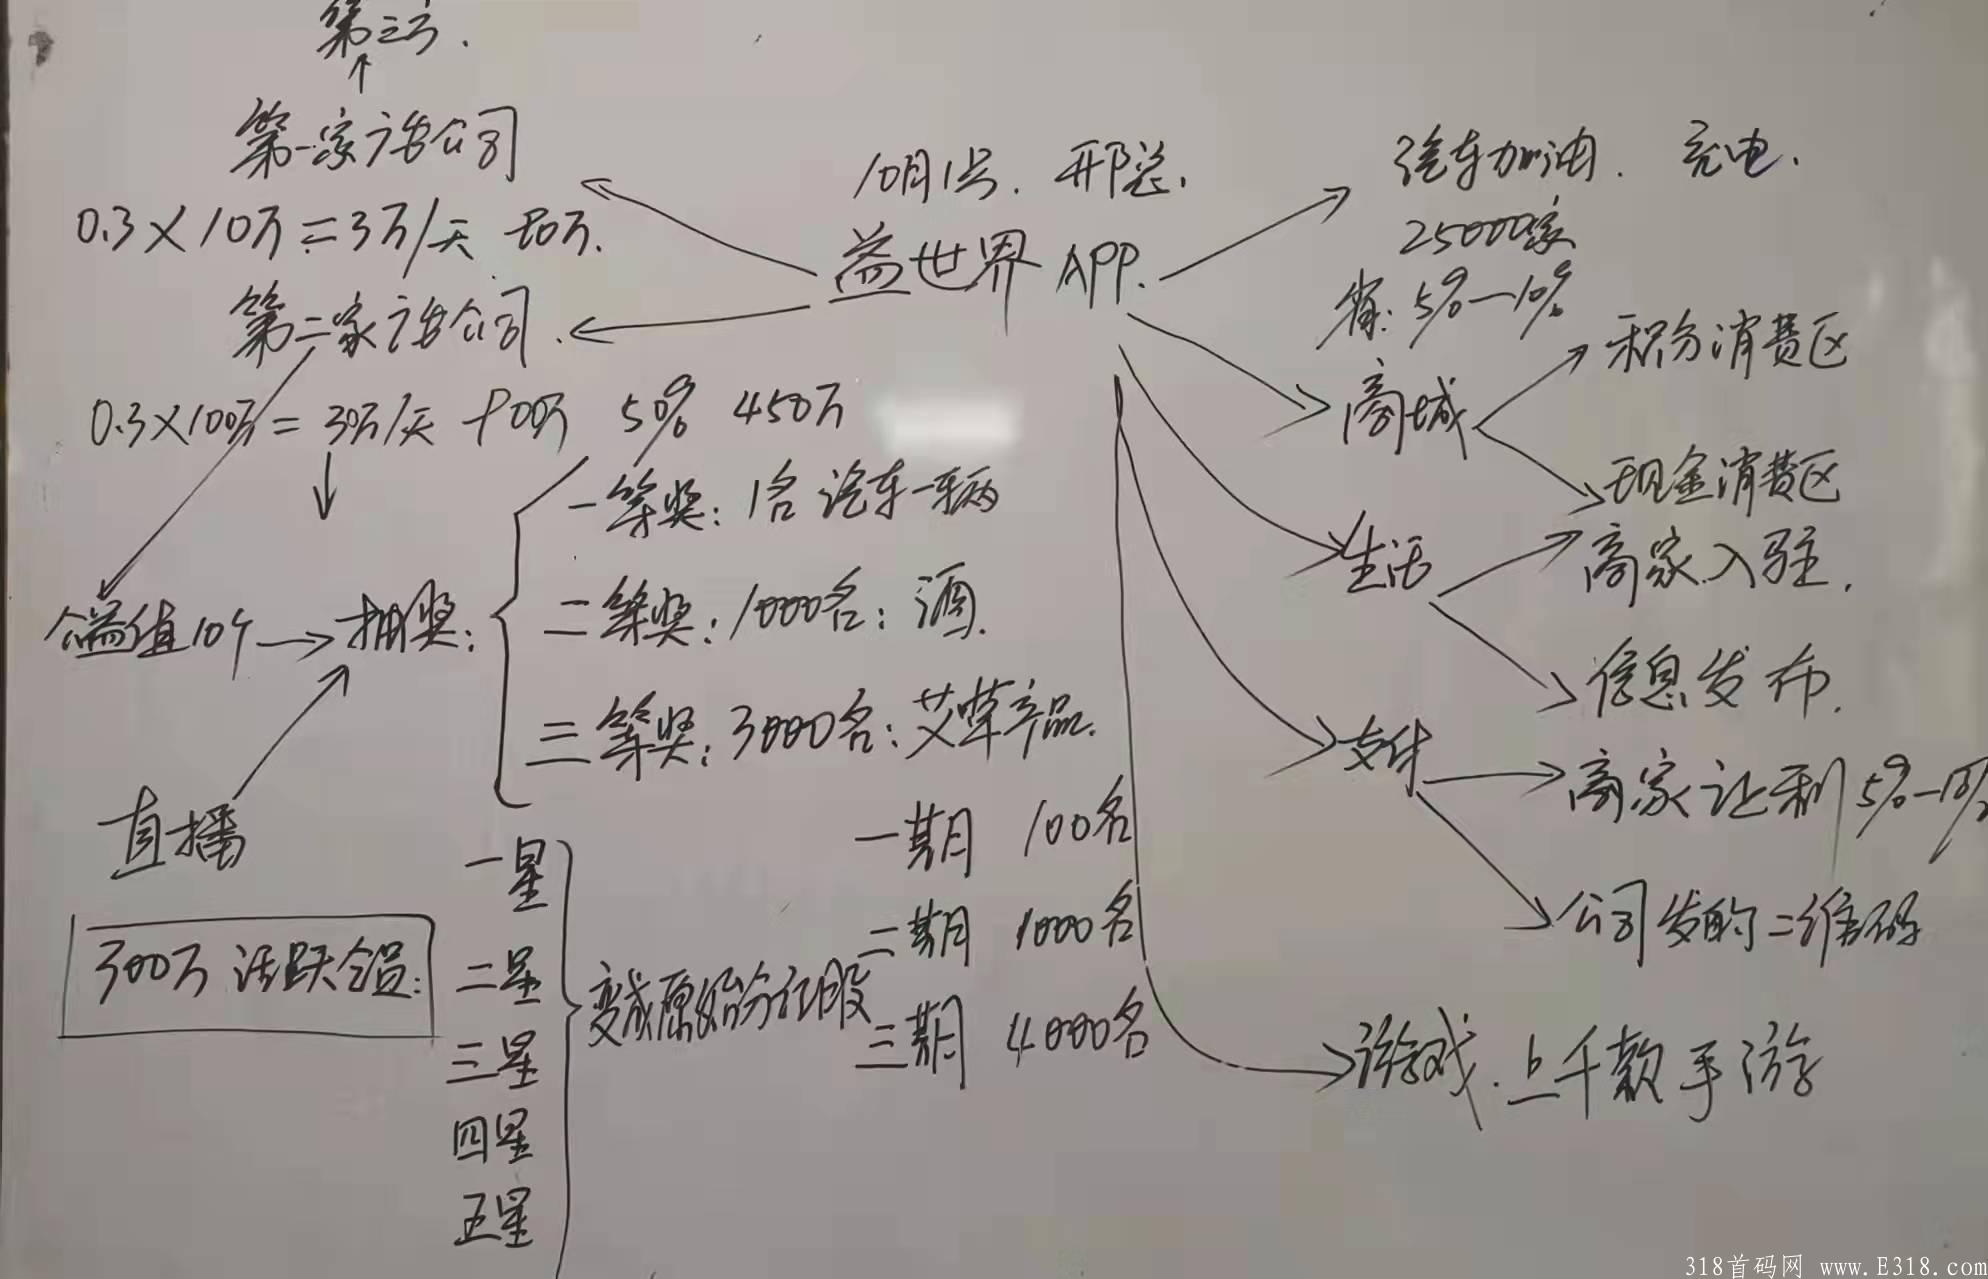 第三方.
第一家广告公司
0.3×10万=3万/天 90万.
第二家广告公司.
0.3×100万=30万/天 900万 50% 450万
益值10个
抽奖:
一等奖: 1名 汽车一辆
二等奖: 1000名: 酒.
三等奖: 3000名: 艾草产品.
直播
300万 活跃会员:
一星
二星
三星
四星
五星
变成原始分红股
一期 100名
二期 1000名
三期 4000名
10月1号. 邢总.
益世界 APP.
汽车加油. 充电.
25000家
省: 5%—10%
商城
积分消费区
现金消费区
生活
商家入驻.
信息发布.
支付
商家让利 5%—10%
公司发的二维码
游戏. 上千款手游
318首码网 www.E318.com